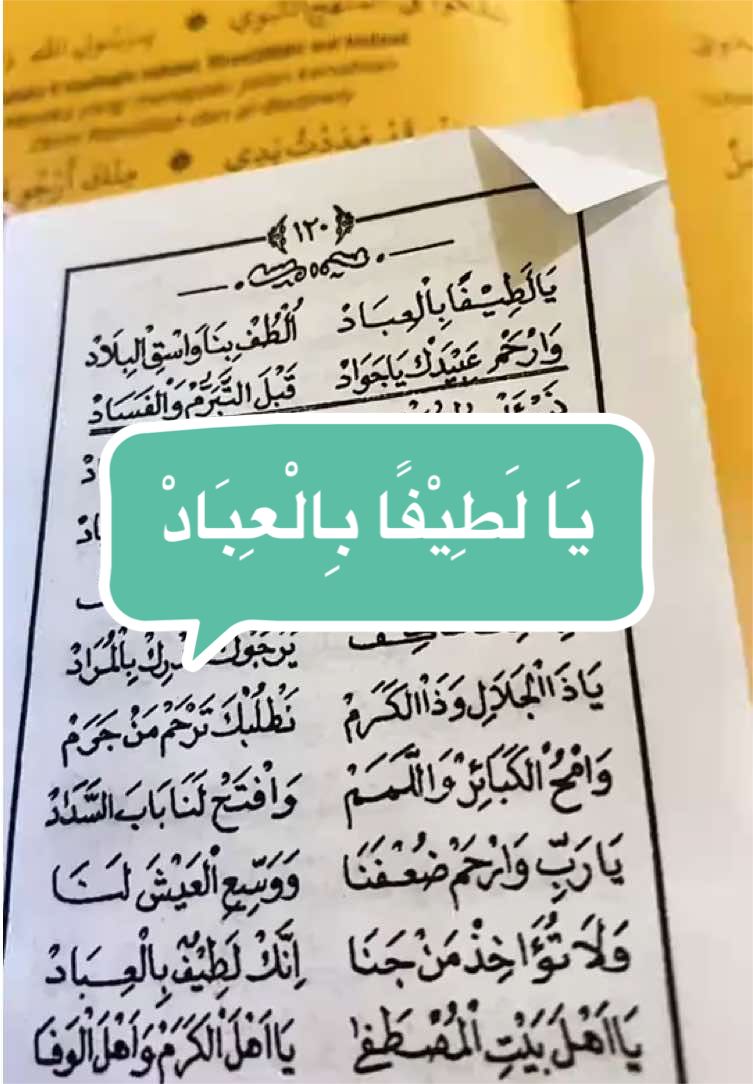 مَدَدْتُ يَدِي
﴿١٢٠﴾
يَا لَطِيْفًا بِالْعِبَادْ اُلْطُفْ بِنَا وَاسْقِ الْبِلَادْ
وَارْحَمْ عَبِيْدَكْ يَا جَوَادْ قَبْلَ التَّبَرُّمْ وَالْفَسَادْ
يَا لَطِيْفًا بِالْعِبَادْ
بِالْمُرَادْ
يَا ذَاالْجَلَالِ وَذَاالْكَرَمْ نَطْلُبْكَ تَرْحَمْ مَنْ جَرَمْ
وَامْحُ الْكَبَائِرْ وَاللَّمَمْ وَافْتَحْ لَنَا بَابَ السَّدَادْ
يَا رَبِّ وَارْحَمْ ضُعْفَنَا وَوَسِّعِ الْعَيْشَ لَنَا
وَلَا تُؤَاخِذْ مَنْ جَنَا اِنَّكْ لَطِيْفٌ بِالْعِبَادْ
يَا اَهْلَ بَيْتِ الْمُصْطَفٰى يَا اَهْلَ الْكَرَمْ وَاَهْلَ الْوَفَا